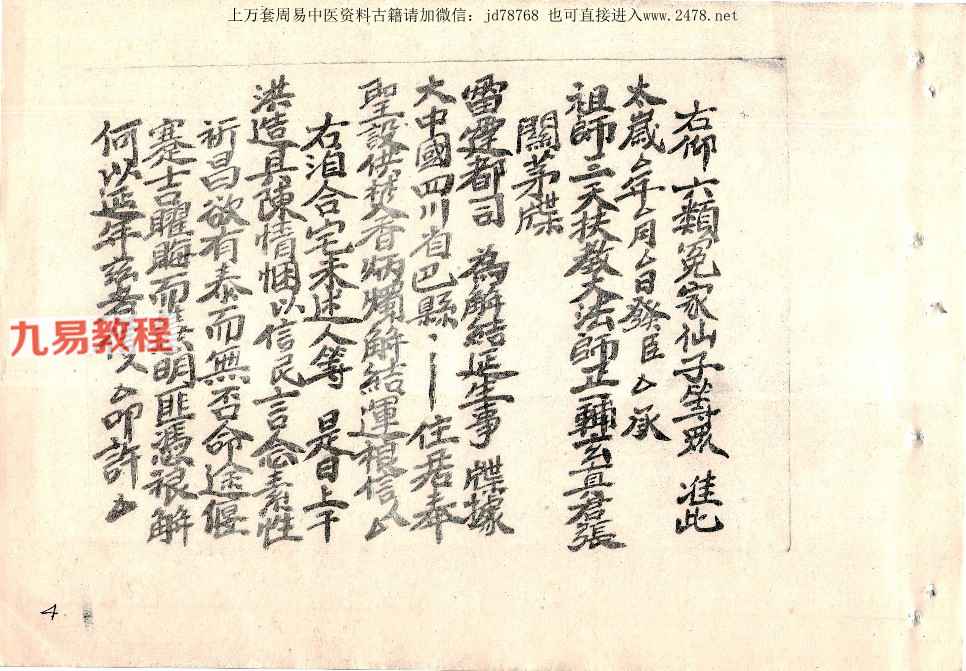 上万套周易中医资料古籍请加微信：jd78768 也可直接进入www.2478.net
右仰六類冤家仙子等眾 准此
太歲厶年厶月厶日發臣厶承
祖師三天扶教大法師正一輔玄真君張
關茅牒
雷霆都司 為解結延生事 牒據
大中國四川省巴縣 住居奉
聖設供焚香炳燭解結運根信人厶
右洎合宅未述人等 是日上干
洪造具陳情悃以信民言念素性
祈昌欲有泰而無否命途偃
蹇吉曜晦而 明匪憑禳解
何以延年茲者 厶卬許厶
九易教程
4